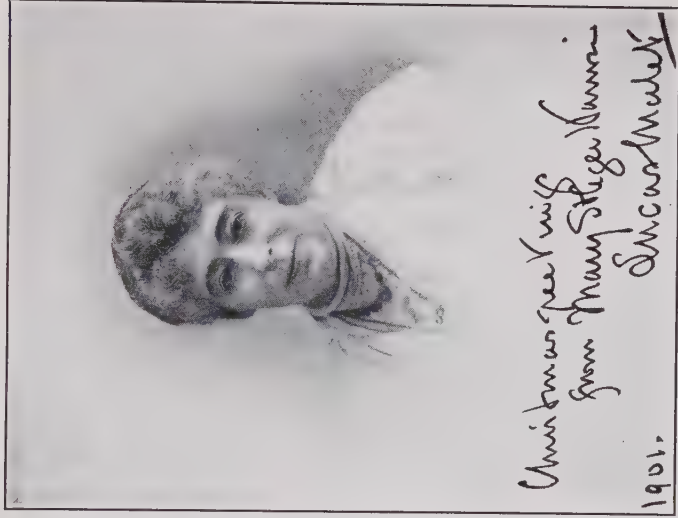 Christmas greetings
from Mary St Leger Harrison
Lucas Malet
1901.